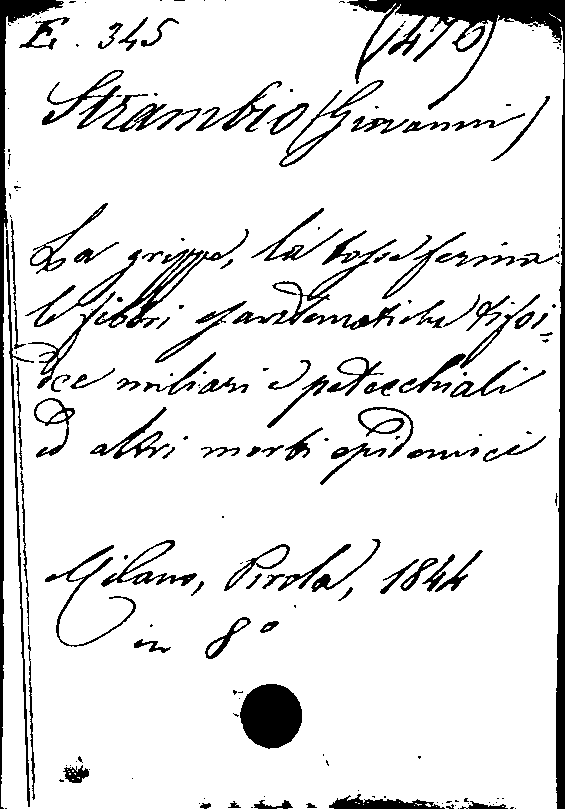 E. 345 (1476)
Strambio (Giovanni)
La grippe, la tosse ferina
le febbri esantematiche tifoi-
dee miliari e petecchiali
ed altri morbi epidemici
Milano, Pirola, 1844
in 8°